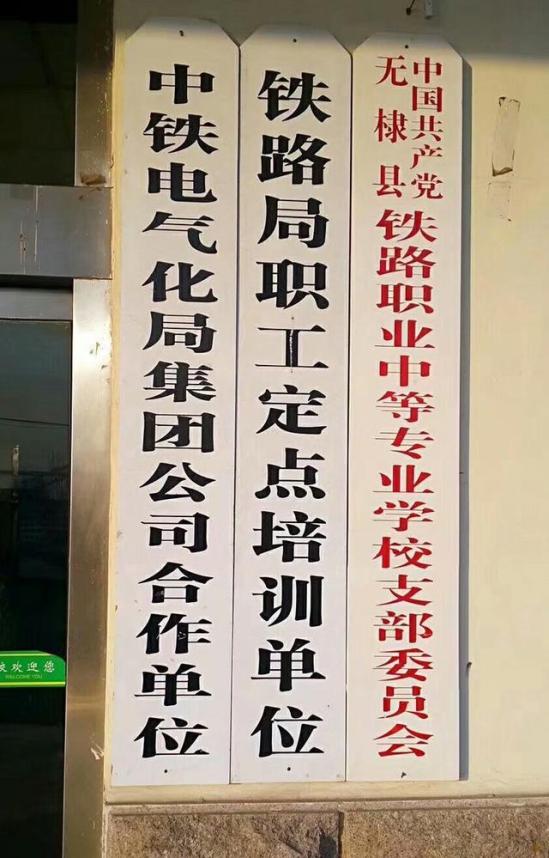 中国共产党
无棣县
铁路职业中等专业学校支部委员会
铁路局职工定点培训单位
中铁电气化局集团公司合作单位
欢迎您
WELCOME YOU